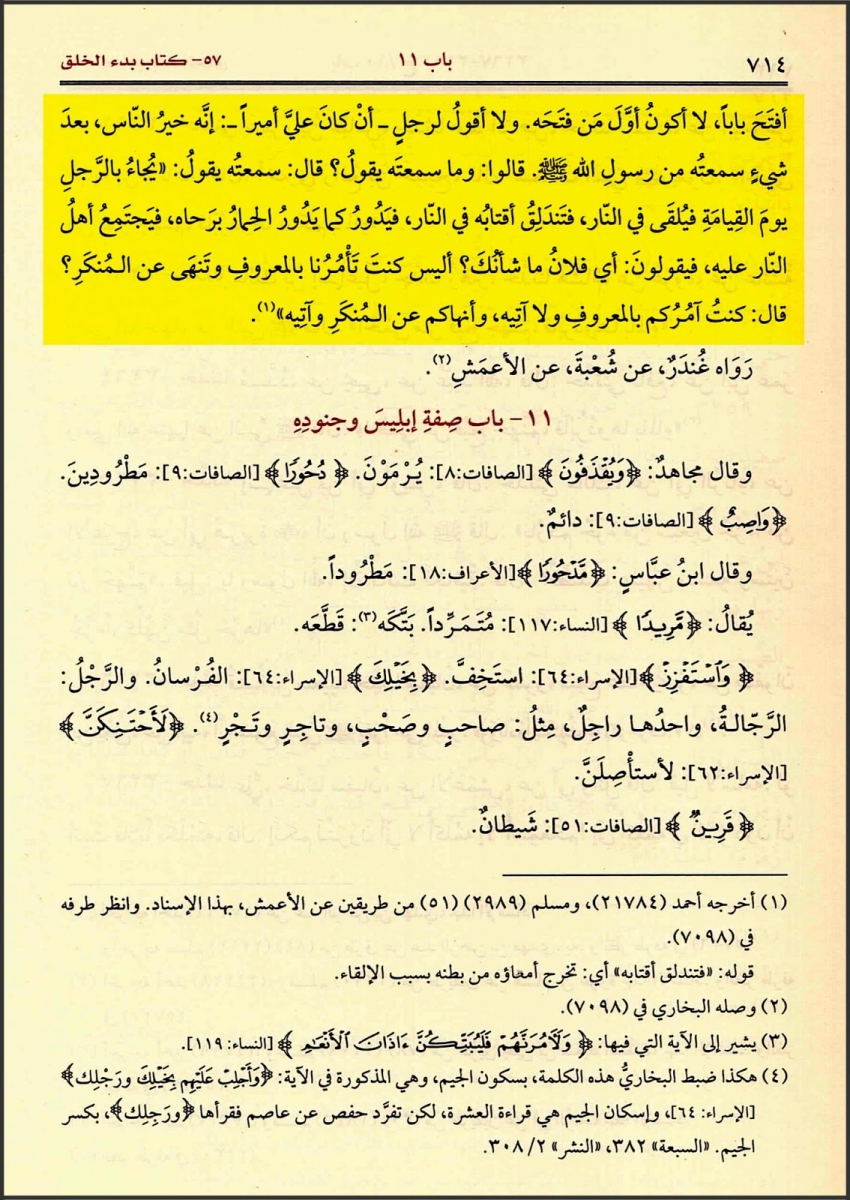 ٧١٤ باب ١١ ٥٧- كتاب بدء الخلق
أفتَحَ باباً، لا أكونُ أوَّلَ مَن فتَحَه. ولا أقولُ لرجلٍ ـ أنْ كانَ عليَّ أميراً ـ: إنَّه خيرُ النّاس، بعدَ
شيءٍ سمعتُه من رسولِ الله ﷺ. قالوا: وما سمعتَه يقولُ؟ قال: سمعتُه يقولُ: «يُجاءُ بالرَّجلِ
يومَ القِيامَةِ فيُلقَى في النّار، فتَندَلِقُ أقتابُه في النّار، فيَدُورُ كما يَدُورُ الحِمارُ برَحاه، فيَجتَمِعُ أهلُ
النّار عليه، فيقولونَ: أي فلانُ ما شأنُكَ؟ أليس كنتَ تَأمُرُنا بالمعروفِ وتَنهَى عن المُنكَرِ؟
قال: كنتُ آمُرُكم بالمعروفِ ولا آتِيه، وأنهاكم عن المُنكَرِ وآتِيه»(١).
رَوَاه غُندَرٌ، عن شُعْبةَ، عن الأعمَشِ(٢).
١١- باب صِفةِ إبلِيسَ وجنودِهِ
وقال مجاهدٌ: ﴿وَيُقْذَفُونَ﴾ [الصافات:٨]: يُرْمَوْنَ. ﴿دُحُورًا﴾ [الصافات:٩]: مَطْرُودِينَ.
﴿وَاصِبٌ﴾ [الصافات:٩]: دائمٌ.
وقال ابنُ عبَّاسٍ: ﴿مَّدْحُورًا﴾ [الأعراف:١٨]: مَطْرُوداً.
يُقالُ: ﴿مَّرِيدًا﴾ [النساء:١١٧]: مُتَمَرِّداً. بَتَّكَه(٣): قَطَّعَه.
﴿وَٱسْتَفْزِزْ﴾ [الإسراء:٦٤]: استَخِفَّ. ﴿بِخَيْلِكَ﴾ [الإسراء:٦٤]: الفُرْسانُ. والرَّجْلُ:
الرَّجّالةُ، واحدُها راجِلٌ، مِثلُ: صاحبٍ وصَحْبٍ، وتاجِرٍ وتَجْرٍ(٤). ﴿لَأَحْتَنِكَنَّ﴾
[الإسراء:٦٢]: لأستأْصِلَنَّ.
﴿قَرِينٌ﴾ [الصافات:٥١]: شَيطانٌ.
(١) أخرجه أحمد (٢١٧٨٤)، ومسلم (٢٩٨٩) (٥١) من طريقين عن الأعمش، بهذا الإسناد. وانظر طرفه
في (٧٠٩٨).
قوله: «فتندلق أقتابه» أي: تخرج أمعاؤه من بطنه بسبب الإلقاء.
(٢) وصله البخاري في (٧٠٩٨).
(٣) يشير إلى الآية التي فيها: ﴿وَلَآمُرَنَّهُمْ فَلَيُبَتِّكُنَّ ءَاذَانَ ٱلْأَنْعَٰمِ﴾ [النساء: ١١٩].
(٤) هكذا ضبط البخاريُّ هذه الكلمة، بسكون الجيم، وهي المذكورة في الآية: ﴿وَأَجْلِبْ عَلَيْهِم بِخَيْلِكَ ورَجْلِك﴾
[الإسراء: ٦٤]، وإسكان الجيم هي قراءة العشرة، لكن تفرَّد حفص عن عاصم فقرأها ﴿ورَجِلِك﴾، بكسر
الجيم. «السبعة» ٣٨٢، «النشر» ٣٠٨/٢.